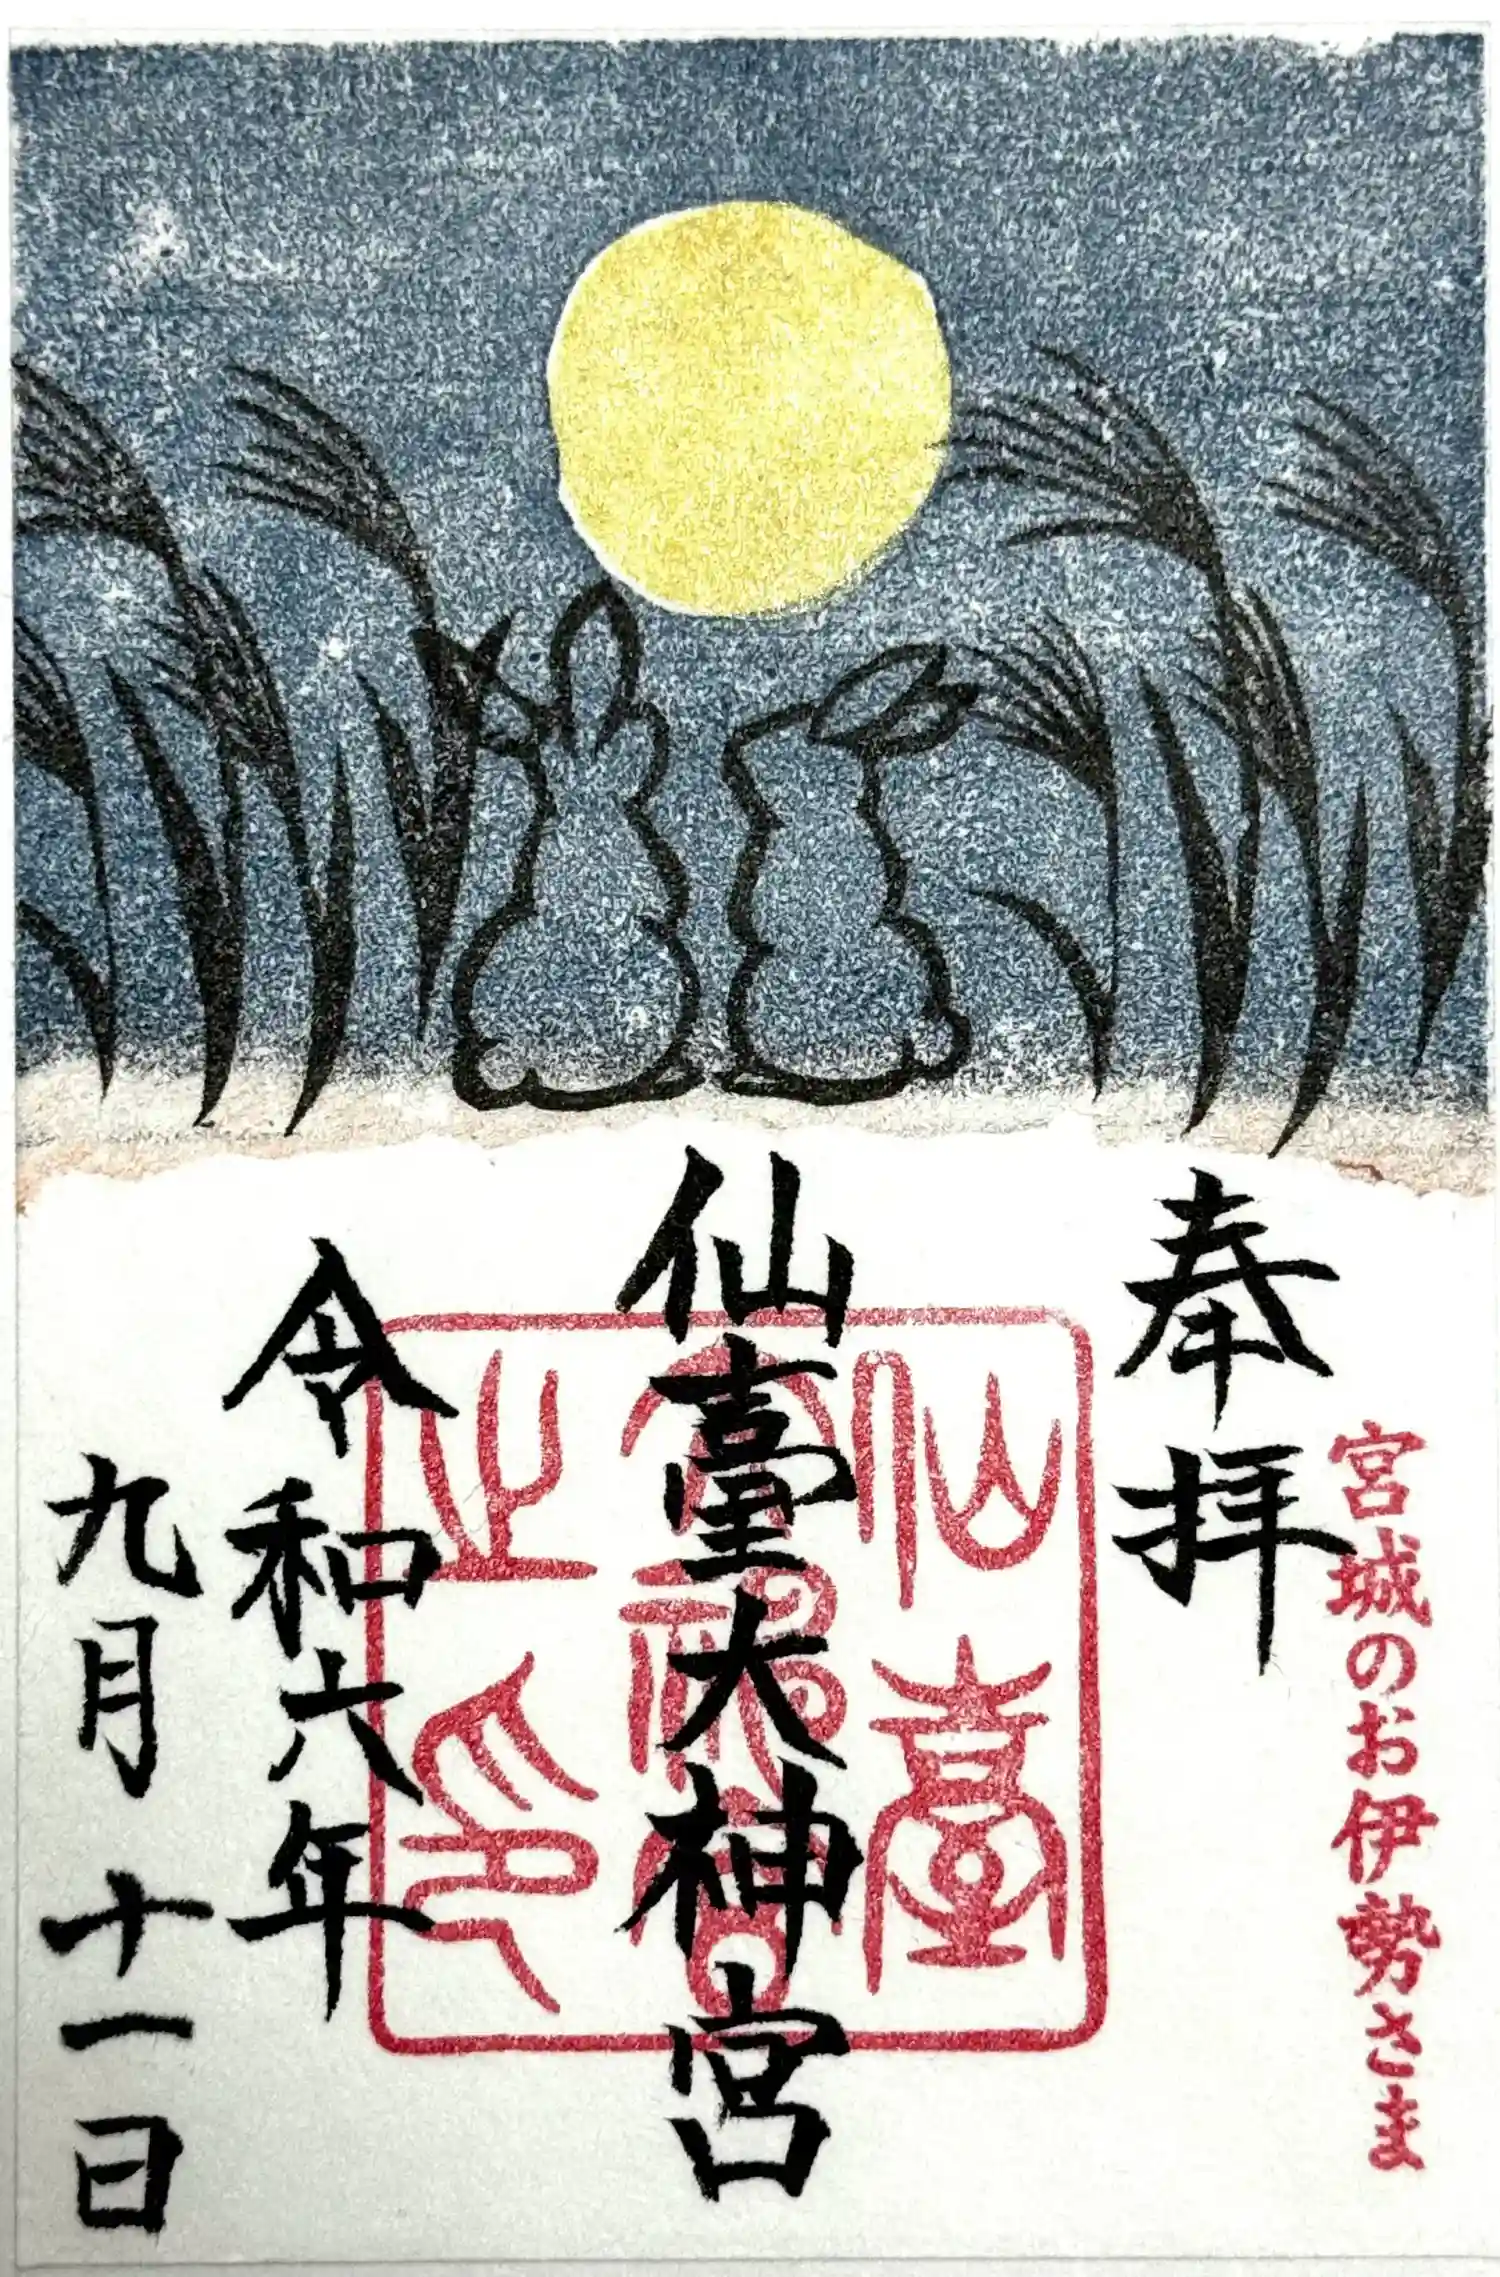 宮城のお伊勢さま
奉拝
仙臺大神宮
仙臺
大神宮
之印
令和六年
九月十一日